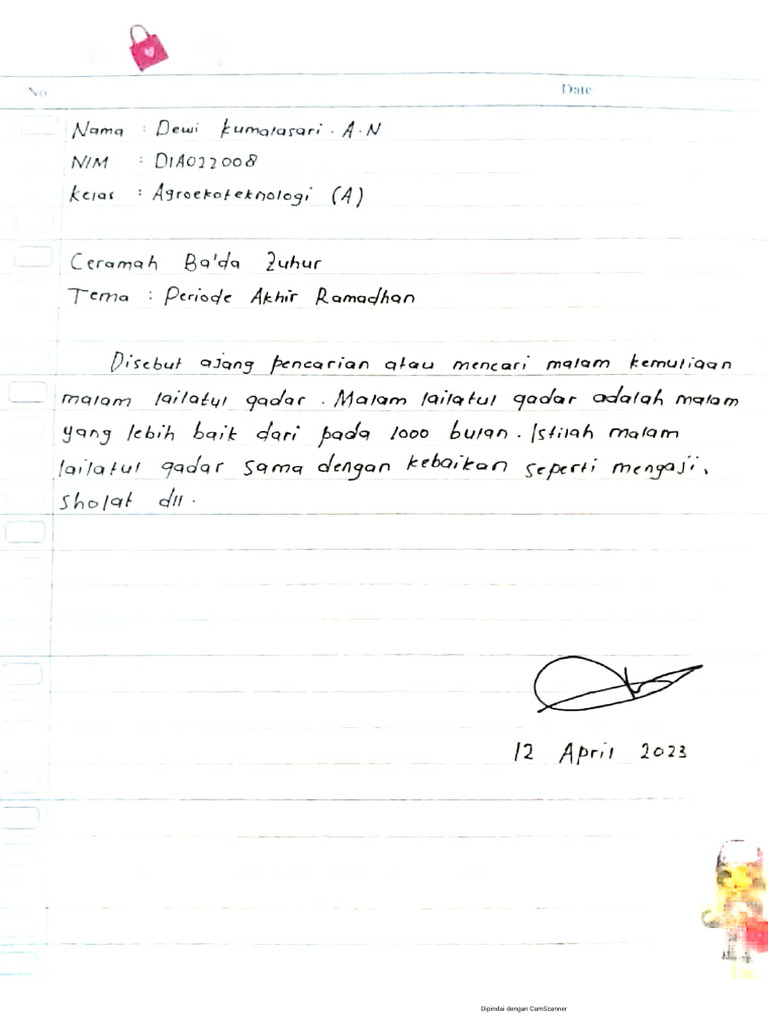 No.
Date
Nama : Dewi Kumalasari . A . N
NIM : D1A022008
Kelas : Agroekoteknologi (A)
Ceramah Ba'da Zuhur
Tema : Periode Akhir Ramadhan
Disebut ajang pencarian atau mencari malam kemuliaan
malam lailatul qadar . Malam lailatul qadar adalah malam
yang lebih baik dari pada 1000 bulan . Istilah malam
lailatul qadar sama dengan kebaikan seperti mengaji,
sholat dll .
12 April 2023
Dipindai dengan CamScanner